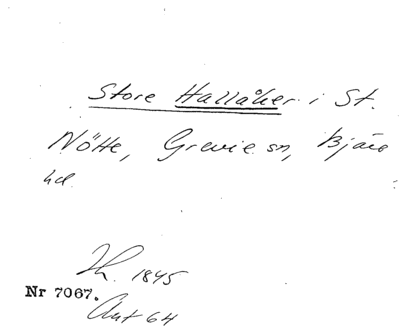 Store Hallåker i St.
Nötte, Grevie sn, Bjäre
hd
Th. 1845
Nr 7067.
Ant 64